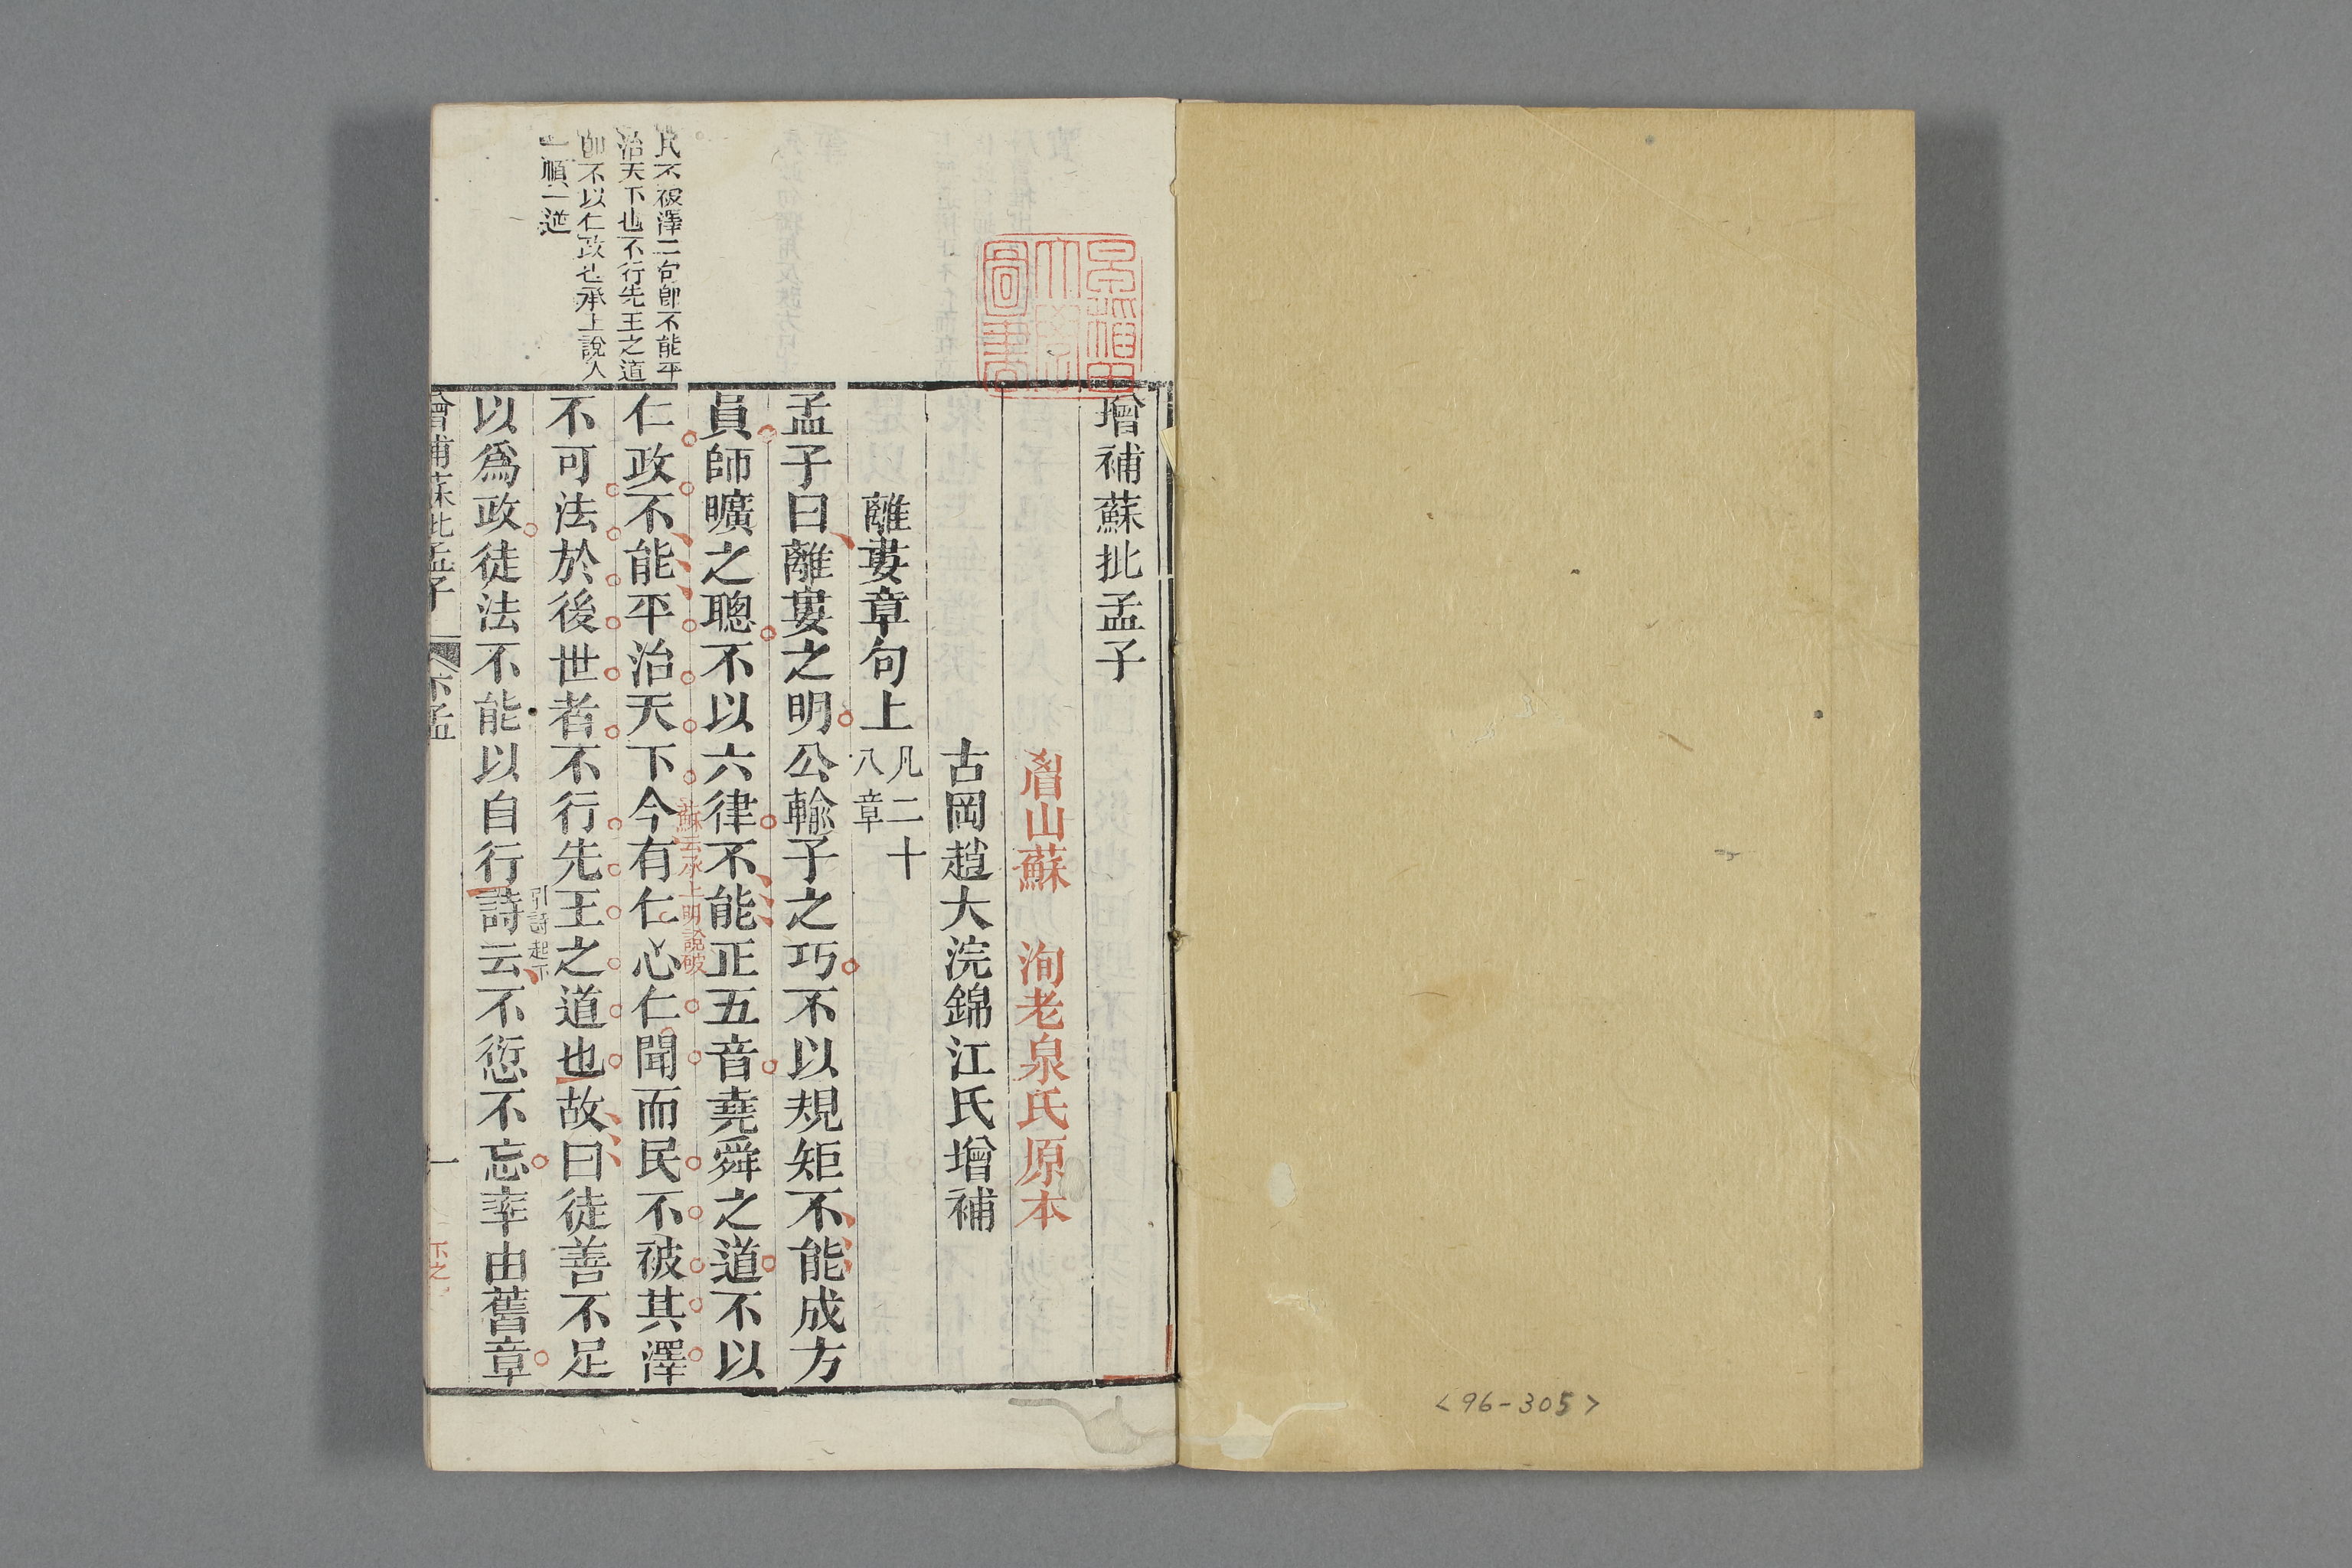 增補蘇批孟子
眉山蘇　洵老泉氏原本
古岡趙大浣錦江氏增補
離婁章句上凡二十八章
孟子曰離婁之明公輸子之巧不以規矩不能成方
員師曠之聰不以六律不能正五音堯舜之道不以
蘇云承上明說破
仁政不能平治天下今有仁心仁聞而民不被其澤
不可法於後世者不行先王之道也故曰徒善不足
引詩起下
以爲政徒法不能以自行詩云不愆不忘率由舊章
增補蘇批孟子　下孟　一
民不被澤二句卽不能平
治天下也不行先王之道
卽不以仁政也承上說入
一順一逆
早稻田大學圖書
<96-305>